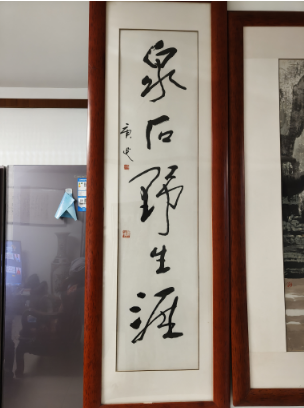 泉石野生涯